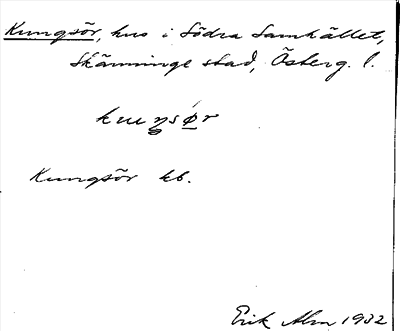 Kungsör, hus i Södra Samhället,
Skänninge stad, Österg. l.
kuŋsø̱r
Kungsör kb.
Erik Alm 1932